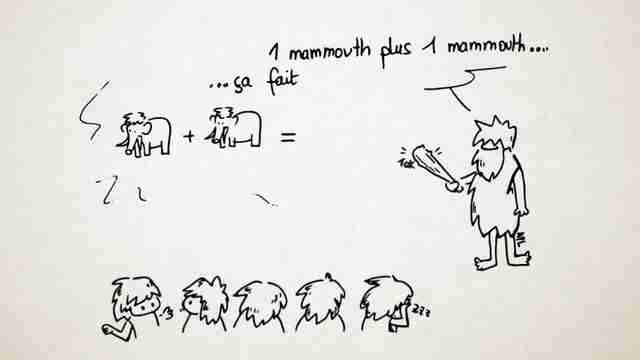 1 mammouth plus 1 mammouth....
...ça fait
+ =
Tok
zzz